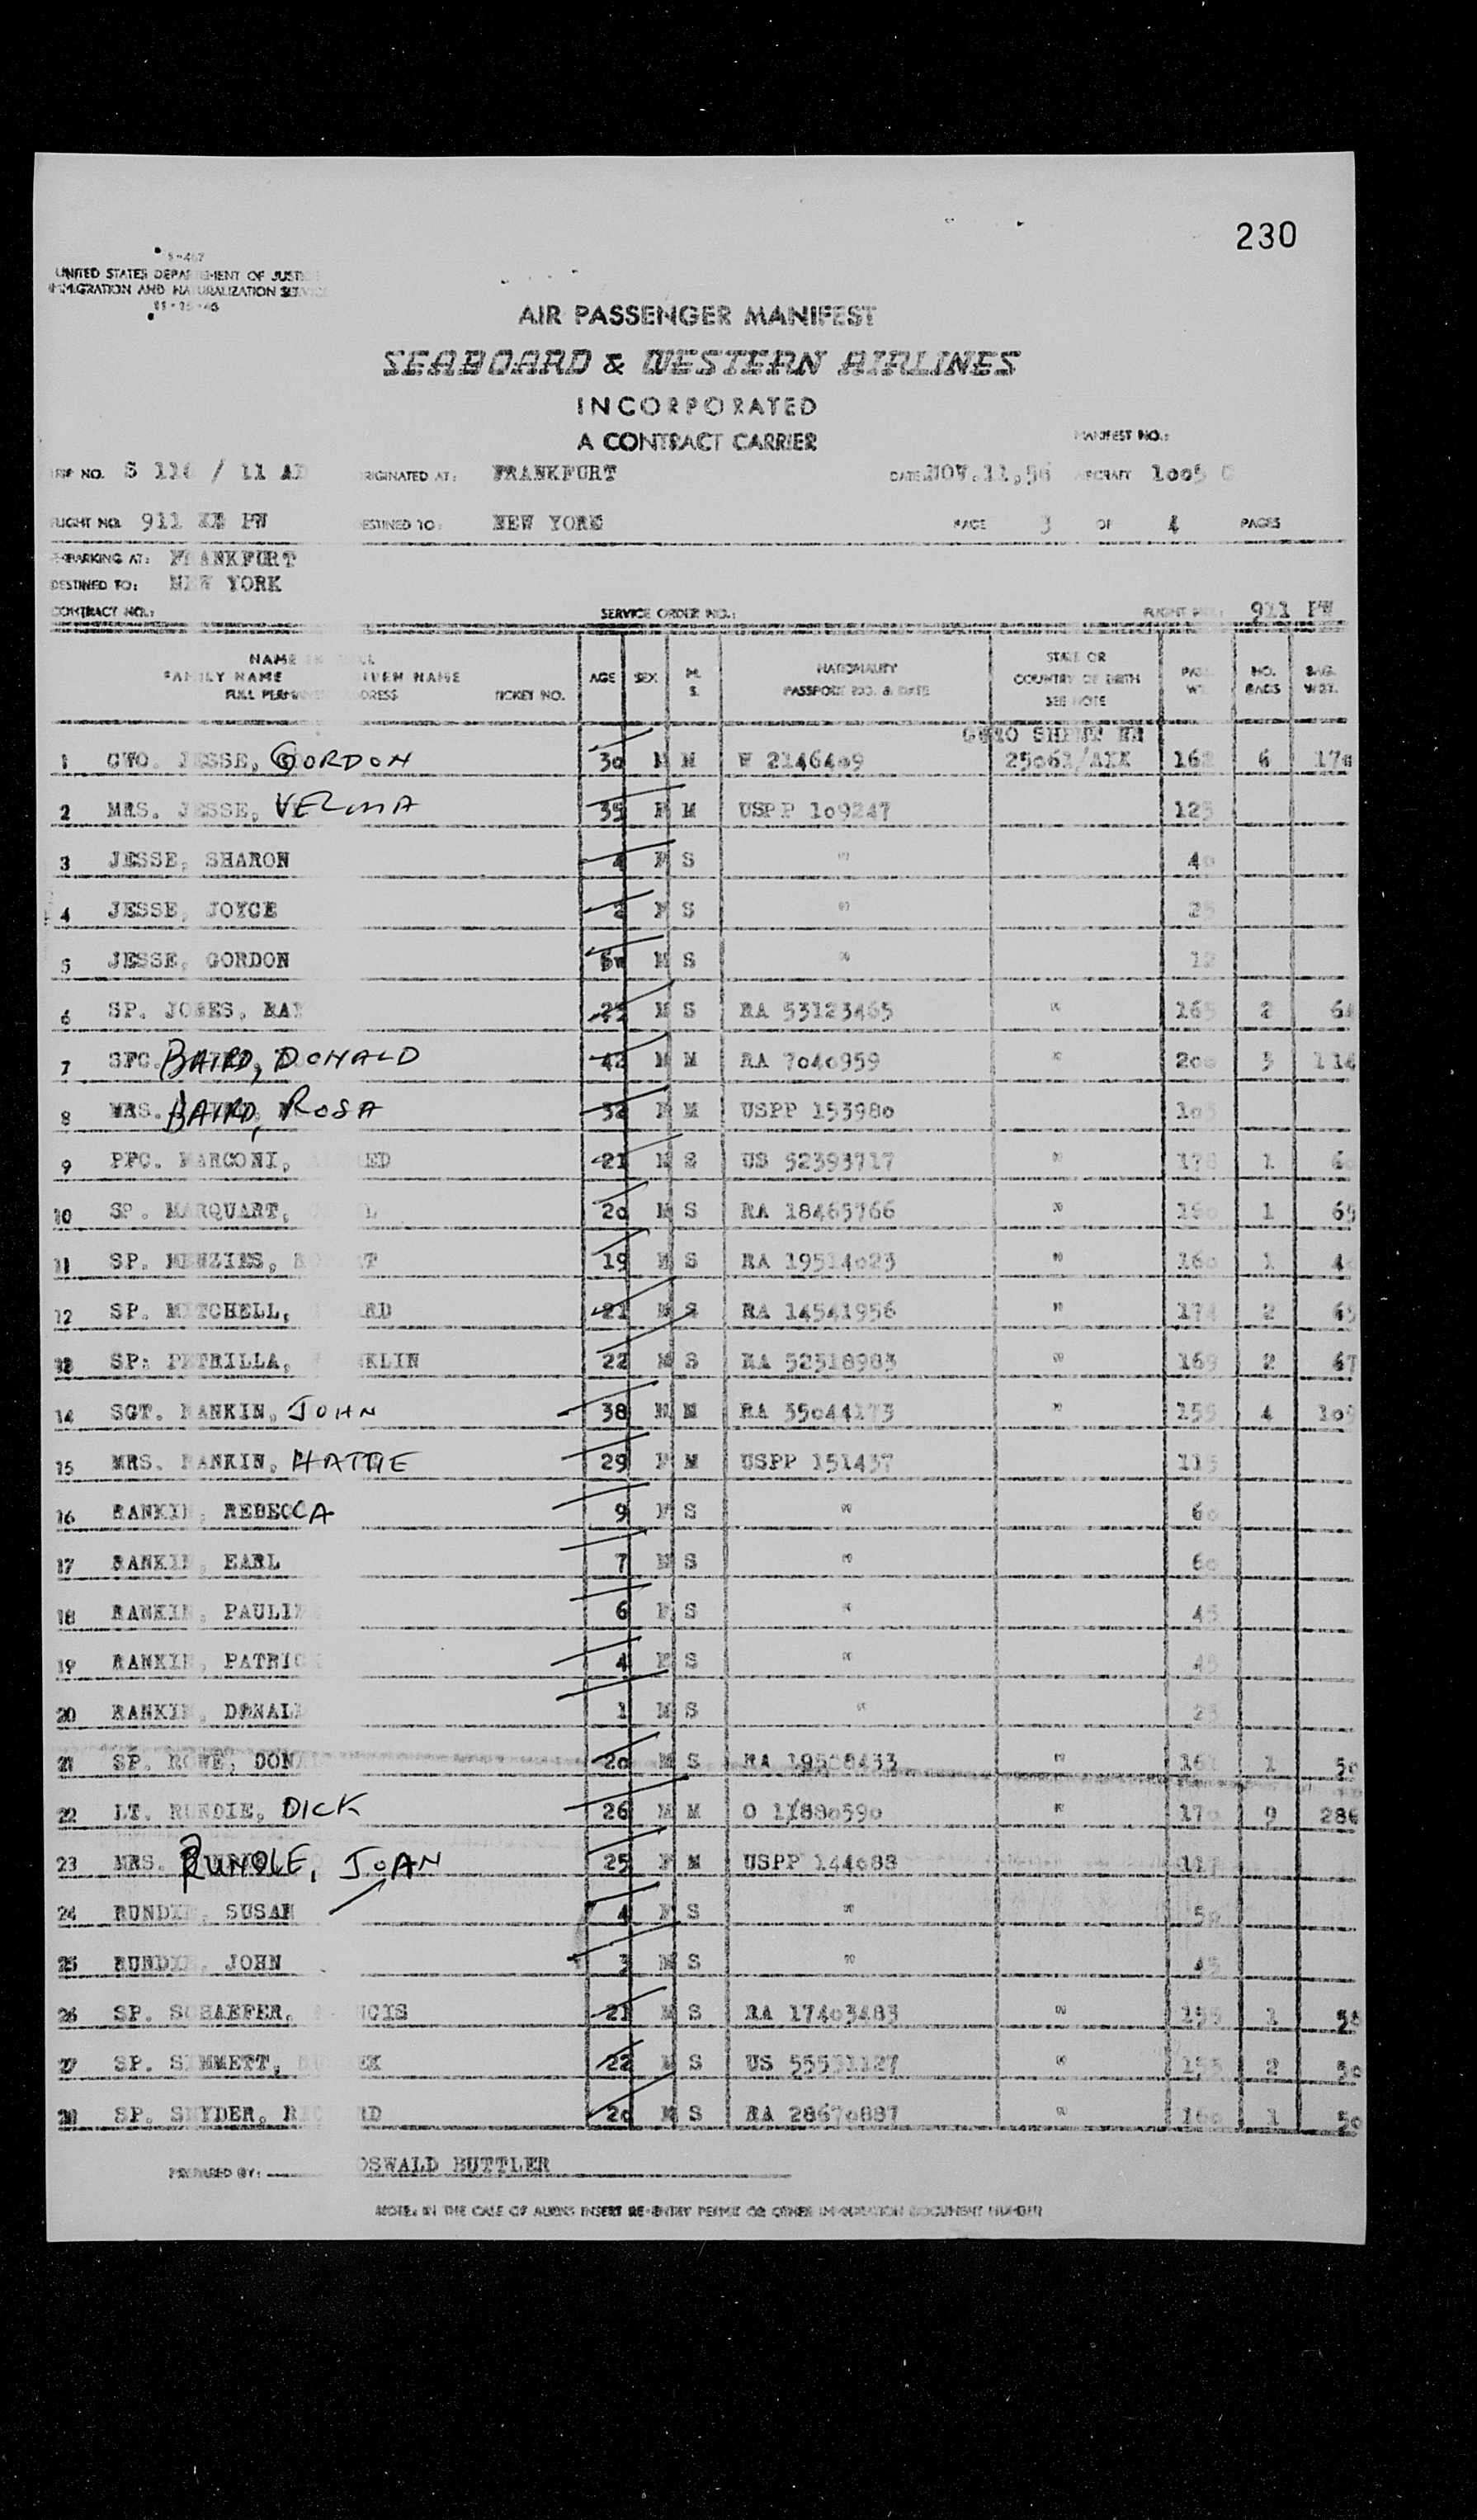 230
UNITED STATES DEPARTMENT OF JUSTICE
IMMIGRATION AND NATURALIZATION SERVICE
AIR PASSENGER MANIFEST
SEABOARD & WESTERN AIRLINES
INCORPORATED
A CONTRACT CARRIER
MANIFEST NO.:
NO. S 116 / 11 ORIGINATED AT: FRANKFURT DATE NOV.11,56 AIRCRAFT 1005
FLIGHT NO. 911 PW DESTINED TO: NEW YORK PAGE 3 OF 4 PAGES
EMBARKING AT: FRANKFURT
DESTINED TO: NEW YORK
CONTRACT NO.: SERVICE ORDER NO.: FLIGHT 911 PW
NAME FAMILY NAME GIVEN NAME FULL PERMANENT ADDRESS TICKET NO. AGE SEX M. S. NATIONALITY PASSPORT NO. & DATE STATE OR COUNTRY OF BIRTH SEE NOTE NO. BAGS BAG. WGT.
1 JESSE, GORDON 30 M M W 2146409 6 170
2 MRS. JESSE, VELMA 35 F M USPP 109247 125
3 JESSE, SHARON 4 F S " 40
4 JESSE, JOYCE 2 F S " 25
5 JESSE, GORDON M S " 12
6 SP. JONES, RAY M S RA 53123465 " 165 2
7 SFC. BAIRD, DONALD 42 M M RA 7040959 " 200 5 114
8 MRS. BAIRD, ROSA 32 F M USPP 153980 105
9 PFC. MARCONI, 21 M S US 52393717 " 178 1
10 SP. MARQUART, 20 M S RA 18465766 " 160 1 65
11 SP. MENZIES, 19 M S RA 19514023 " 160 1
12 SP. MITCHELL, 21 M S RA 14541956 " 174 2 65
13 SP. PETRILLA, FRANKLIN 22 M S RA 52518983 " 169 2 67
14 SGT. RANKIN, JOHN 38 M M RA 35044173 " 155 4 109
15 MRS. RANKIN, HATTIE 29 F M USPP 151437 115
16 RANKIN, REBECCA 9 F S " 60
17 RANKIN, EARL 7 M S " 60
18 RANKIN, PAULINE 6 F S " 45
19 RANKIN, PATRICK 4 S " 45
20 RANKIN, DONALD 1 M S " 25
21 SP. ROWE, DONALD 20 M S RA 19528433 " 1 50
22 LT. RUNDIE, DICK 26 M M O 1880590 " 170 9 286
23 MRS. RUNDLE, JOAN 25 F M USPP 144088 117
24 RUNDIE, SUSAN 4 F S " 50
25 RUNDIE, JOHN 3 M S " 45
26 SP. SCHAEFER, FRANCIS 21 M S RA 17403483 " 155 1
27 SP. 22 M S US 55531127 " 155 2
28 SP. SNYDER, RICHARD 20 M S RA 28670887 " 160 1 50
PREPARED BY: OSWALD BUTTLER
NOTE: IN THE CASE OF ALIENS INSERT RE-ENTRY PERMIT OR OTHER IMMIGRATION DOCUMENT NUMBER